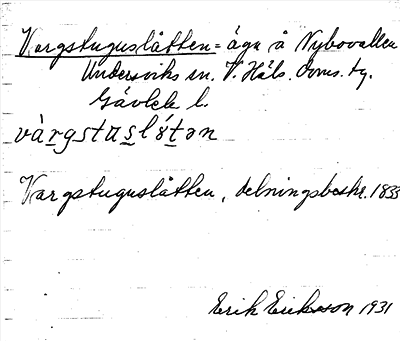 Vargstuguslåtten = äga å Nybovallen
Undersviks sn. V. Häls. doms. tg.
Gävleb l.
vàrgstʊslɔ́tən
Vargstuguslåtten, delningsbeskr. 1833
Erik Eriksson 1931